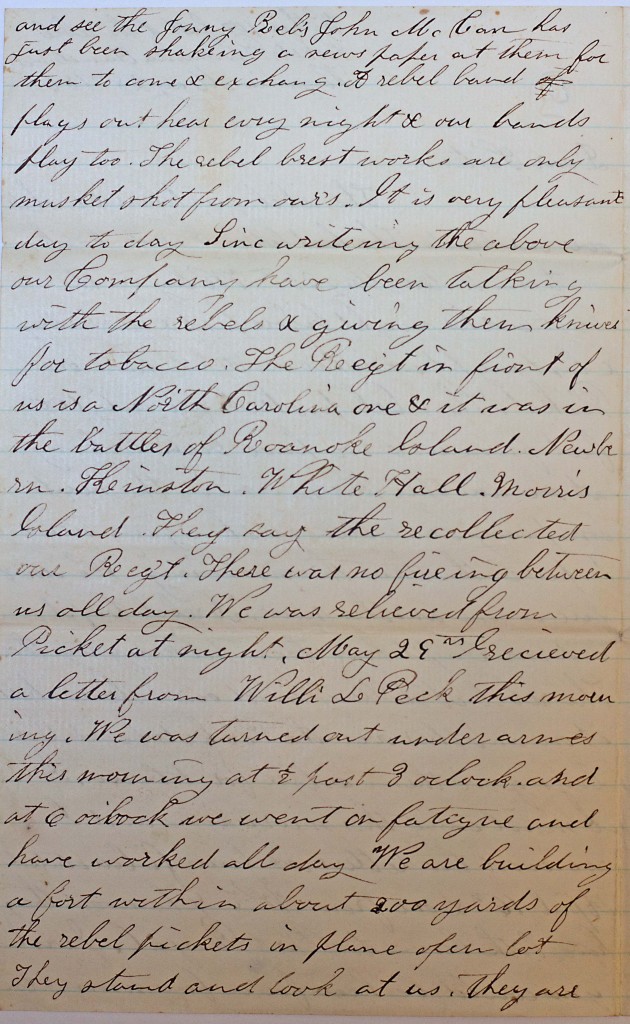 and see the Jonny Rebs John Mc Can has
just been shakeing a news paper at them for
them to come & exchang. A rebel band of
plays out hear evry night & our bands
play too. The rebel brest works are only
musket shot from ours. It is very pleasant
day to day Sinc writeing the above
our Company have been talking
with the rebels & giving them knives
for tobacco. The Regt in front of
us is a North Carolina one & it was in
the battles of Roanoke Island. Newbe
rn. Kinston. White Hall. Morris
Island. They say the recollected
our Regt. There was no fireing between
us all day. We was relieved from
Picket at night. May 29th I recieved
a letter from Willi L Peck this morn
ing. We was turned out under armes
this morning at ½ past 3 oclock. and
at 6 oclock we went on fatigue and
have worked all day We are building
a fort within about 200 yards of
the rebel pickets in plane open lot
They stand and look at us. They are